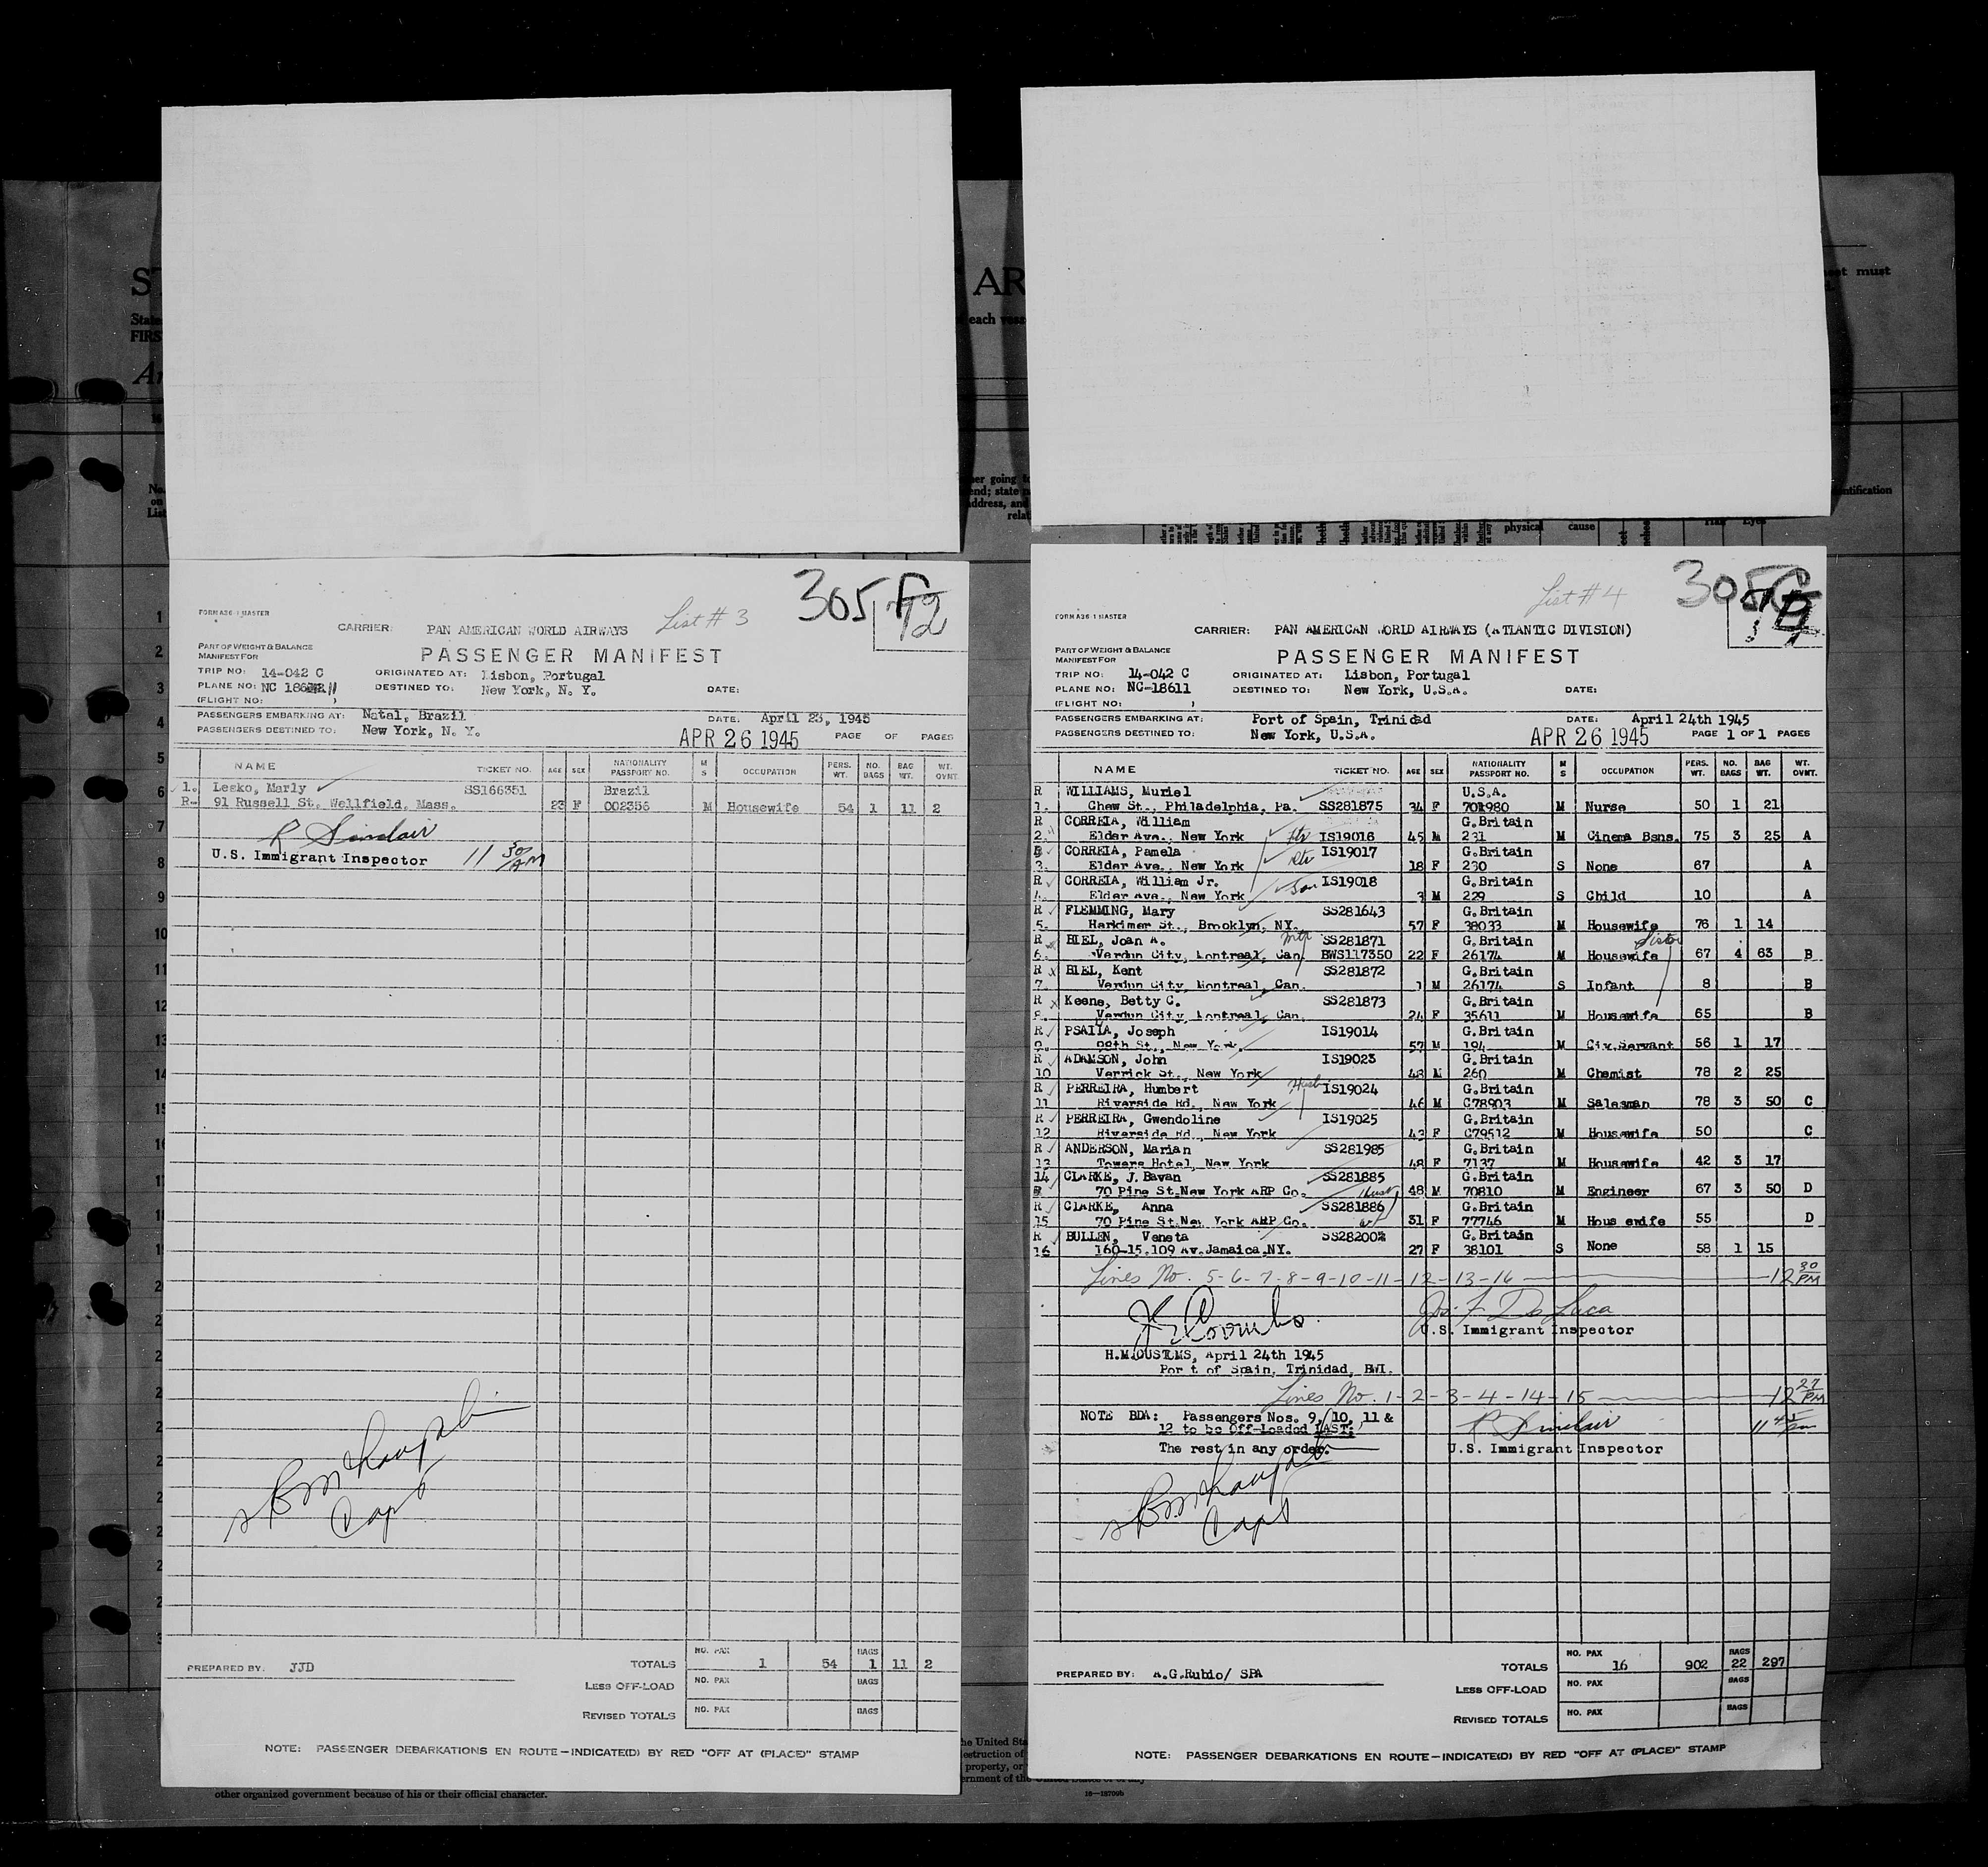 305
F
12
List # 3
FORM A36-1 MASTER
CARRIER: PAN AMERICAN WORLD AIRWAYS
PART OF WEIGHT & BALANCE
MANIFEST FOR
PASSENGER MANIFEST
TRIP NO: 14-042 C ORIGINATED AT: Lisbon, Portugal
PLANE NO: NC 18611 DESTINED TO: New York, N. Y. DATE:
(FLIGHT NO: )
PASSENGERS EMBARKING AT: Natal, Brazil DATE: April 23, 1945
PASSENGERS DESTINED TO: New York, N. Y. APR 26 1945 PAGE OF PAGES
NAME TICKET NO. AGE SEX NATIONALITY PASSPORT NO. M S OCCUPATION PERS. WT. NO. BAGS BAG WT. WT. OVNT.
1. Lesko, Marly SS166351 Brazil
R- 91 Russell St. Wellfield, Mass. 23 F 002356 M Housewife 54 1 11 2
R Sinclair
U.S. Immigrant Inspector 11 30 AM
Capt
PREPARED BY: JJD
TOTALS NO. PAX 1 54 BAGS 1 11 2
LESS OFF-LOAD NO. PAX BAGS
REVISED TOTALS NO. PAX BAGS
NOTE: PASSENGER DEBARKATIONS EN ROUTE—INDICATE(D) BY RED "OFF AT (PLACE)" STAMP
305
List # 4
FORM A36-1 MASTER
CARRIER: PAN AMERICAN WORLD AIRWAYS (ATLANTIC DIVISION)
PART OF WEIGHT & BALANCE
MANIFEST FOR
PASSENGER MANIFEST
TRIP NO: 14-042 C ORIGINATED AT: Lisbon, Portugal
PLANE NO: NC-18611 DESTINED TO: New York, U.S.A. DATE:
(FLIGHT NO: )
PASSENGERS EMBARKING AT: Port of Spain, Trinidad DATE: April 24th 1945
PASSENGERS DESTINED TO: New York, U.S.A. APR 26 1945 PAGE 1 OF 1 PAGES
NAME TICKET NO. AGE SEX NATIONALITY PASSPORT NO. M S OCCUPATION PERS. WT. NO. BAGS BAG WT. WT. OVNT.
R WILLIAMS, Muriel U.S.A.
1. Chew St., Philadelphia, Pa. SS281875 34 F 701980 M Nurse 50 1 21
R CORREIA, William G.Britain
2. Elder Ave., New York IS19016 45 M 231 M Cinema Bsns. 75 3 25 A
R CORREIA, Pamela IS19017 G.Britain
3. Elder Ave., New York 18 F 230 S None 67 A
R CORREIA, William Jr. IS19018 G.Britain
4. Elder Ave., New York Son 3 M 229 S Child 10 A
R FLEMMING, Mary SS281643 G.Britain
5. Harkimer St., Brooklyn, NY. 57 F 38033 M Housewife 76 1 14
R BIEL, Joan A. SS281871 G.Britain Sister
6. Verdun City, Montreal, Can. BWS117350 22 F 26174 M Housewife 67 4 63 B
R BIEL, Kent SS281872 G.Britain
7. Verdun City, Montreal, Can. 1 M 26174 S Infant 8 B
R Keene, Betty C. SS281873 G.Britain
8. Verdun City, Montreal, Can. 24 F 35611 M Housewife 65 B
R PSAILA, Joseph IS19014 G.Britain
9. 98th St., New York. 57 M 194 M Civ.Servant 56 1 17
R ADAMSON, John IS19023 G.Britain
10 Varrick St., New York 43 M 260 M Chemist 78 2 25
R PERREIRA, Humbert Husb IS19024 G.Britain
11 Riverside Rd., New York 46 M C78903 M Salesman 78 3 50 C
R PERREIRA, Gwendoline IS19025 G.Britain
12 Riverside Rd., New York 43 F C79512 M Housewife 50 C
R ANDERSON, Marian SS281985 G.Britain
13 Towers Hotel, New York 48 F 7137 M Housewife 42 3 17
14 CLARKE, J.Bavan SS281885 G.Britain
R 70 Pine St.New York ARP Co. Husb 48 M 70810 M Engineer 67 3 50 D
R CLARKE, Anna SS281886 G.Britain
15 70 Pine St.New York ARP Co. 31 F 77746 M Hous ewife 55 D
R BULLEN, Veneta SS282002 G.Britain
16 160-15.109 Av.Jamaica.NY. 27 F 38101 S None 58 1 15
Lines No. 5-6-7-8-9-10-11-12-13-16 12 30 PM
Jos. F De Luca
U.S. Immigrant Inspector
H.M.CUSTOMS, April 24th 1945
Por t of Spain, Trinidad, BWI.
Lines No. 1-2-3-4-14-15 12 27 PM
NOTE BDA: Passengers Nos. 9, 10, 11 &
12 to be Off-loaded LAST:
The rest in any order.
R Sinclair
U.S. Immigrant Inspector
Capt
PREPARED BY: A.G.Rubio/ SPA
TOTALS NO. PAX 16 902 BAGS 22 297
LESS OFF-LOAD NO. PAX BAGS
REVISED TOTALS NO. PAX BAGS
NOTE: PASSENGER DEBARKATIONS EN ROUTE—INDICATE(D) BY RED "OFF AT (PLACE)" STAMP
other organized government because of his or their official character.